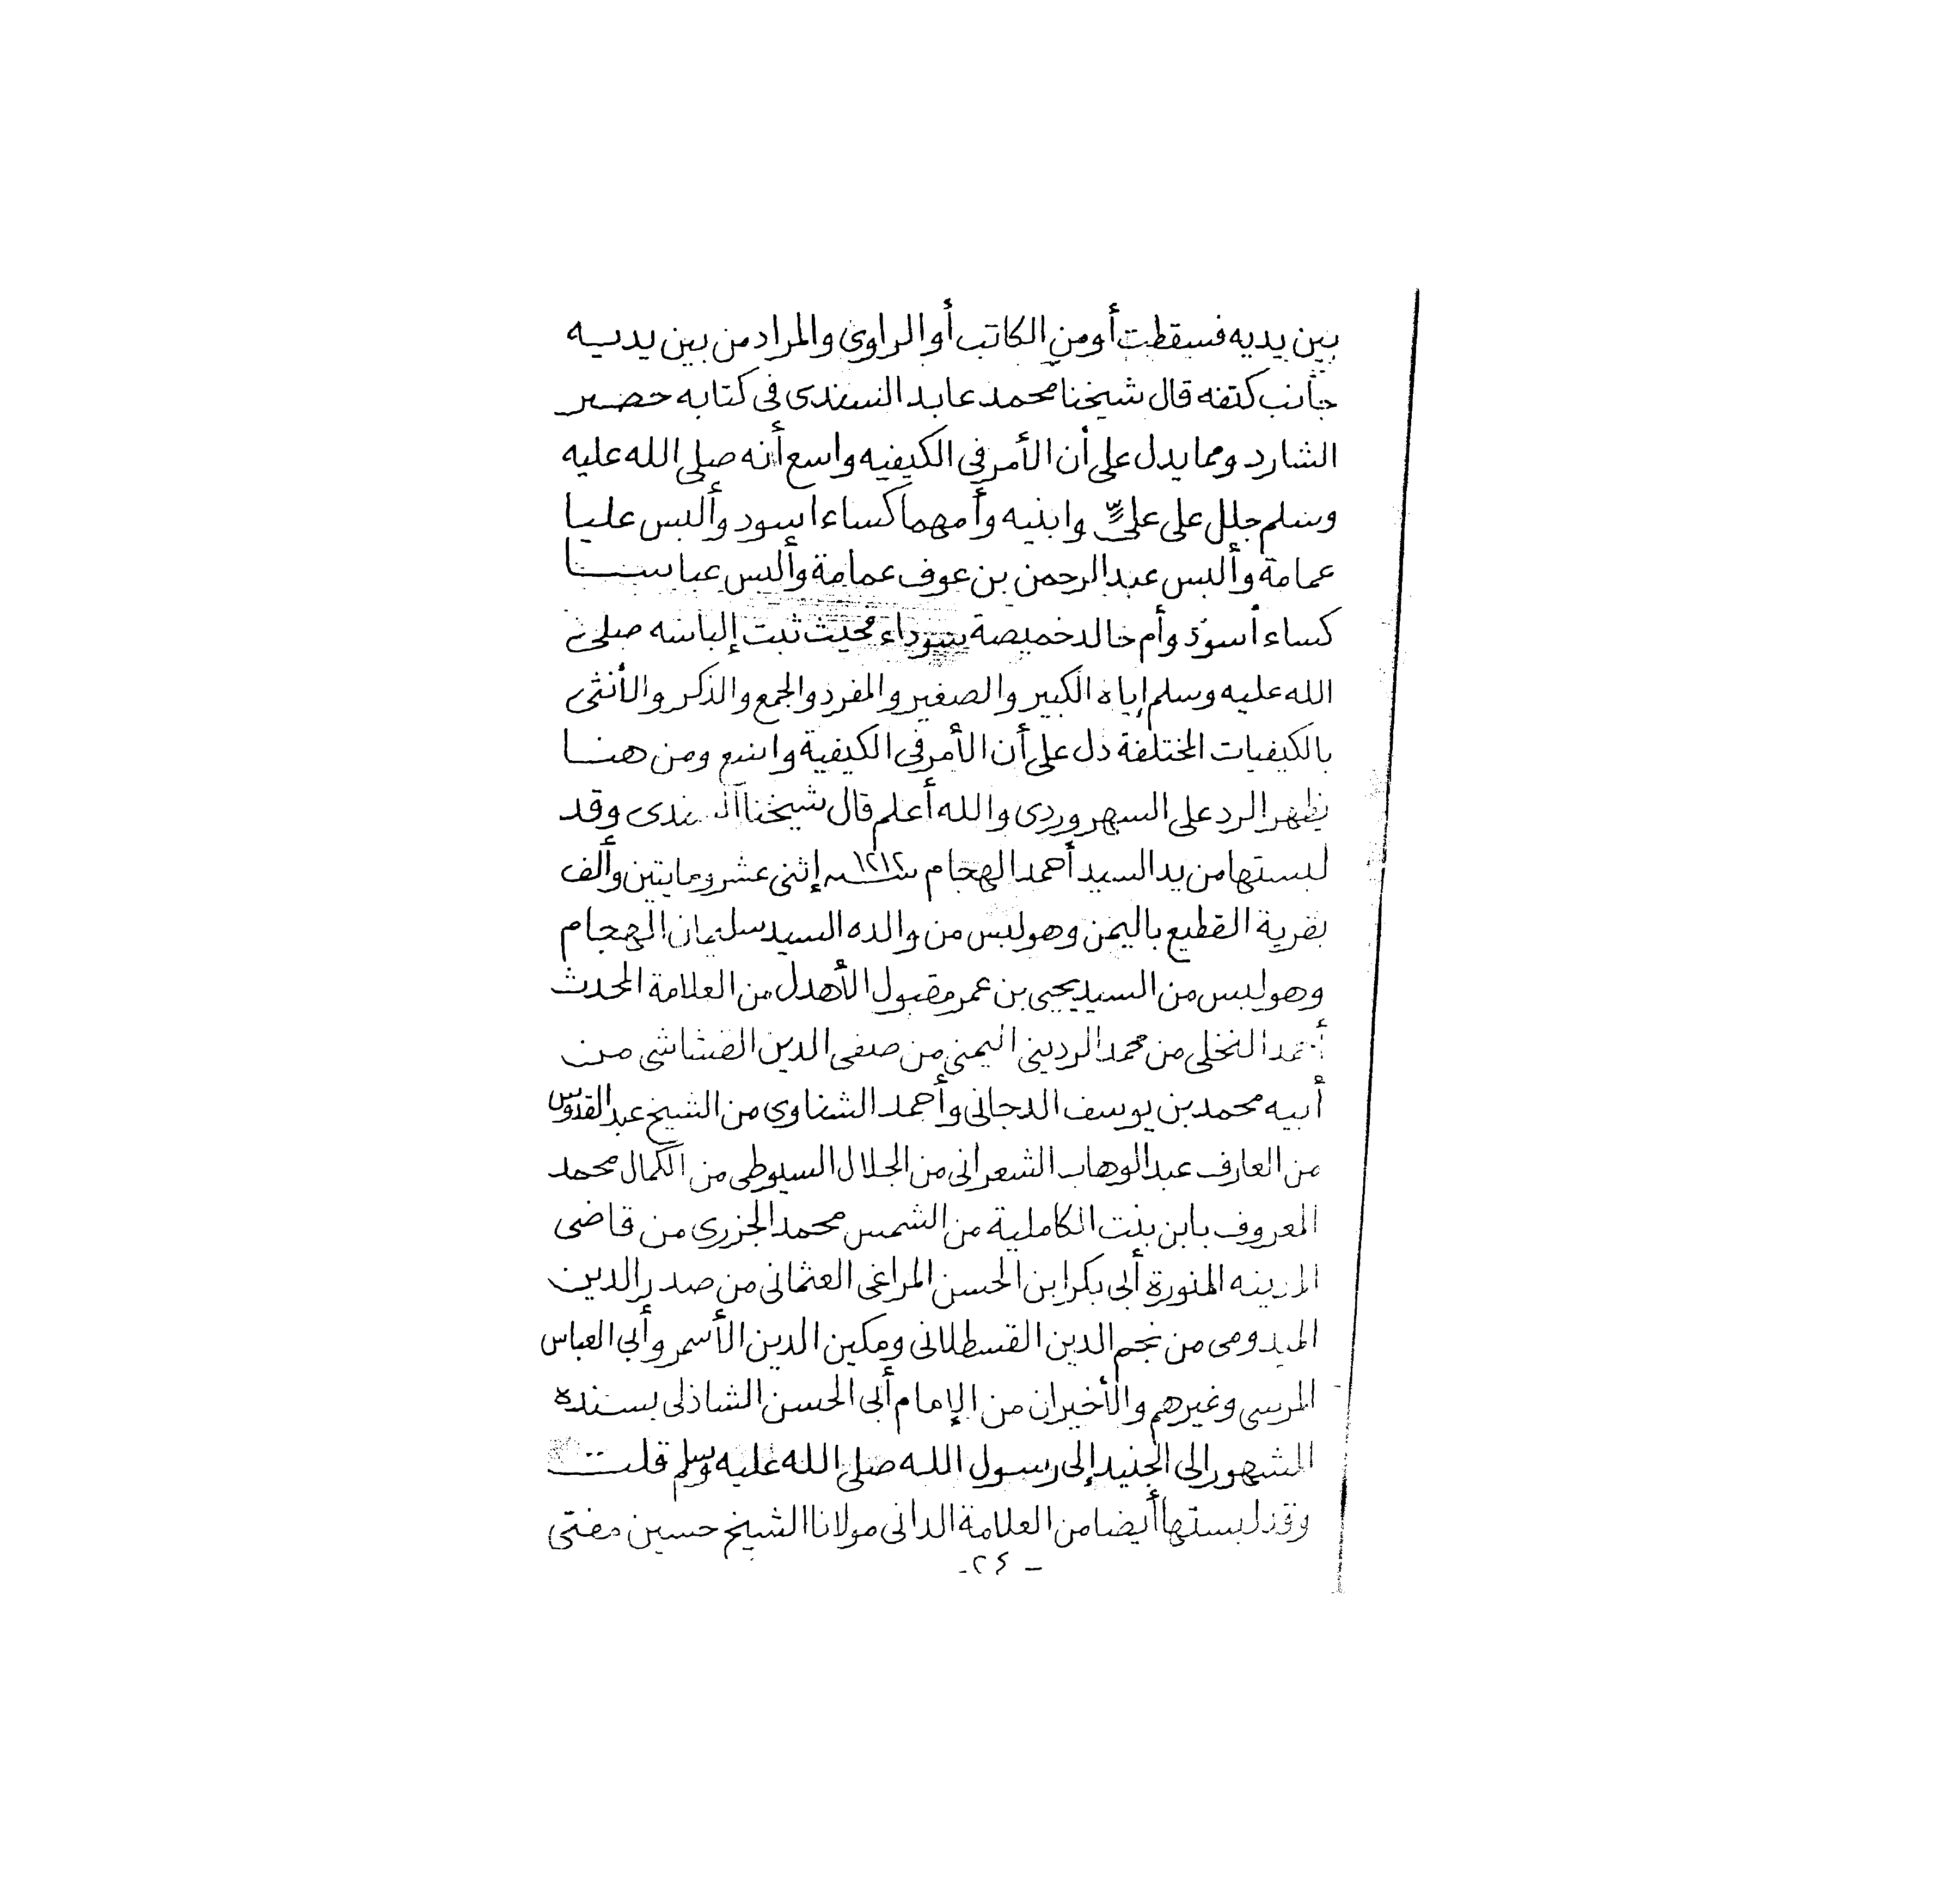 بين يديه فسقطت أو من الكاتب أو الراوى والمراد من بين يديه
جانب كتفه قال شيخنا محمد عابد السندى فى كتابه حصر
الشارد ومما يدل على أن الأمر فى الكيفيه واسع أنه صلى الله عليه
وسلم جلل على علىٍّ وابنيه وأمهما كساء اسود وألبس عليا
عمامة وألبس عبد الرحمن بن عوف عمامة وألبس عباسا
كساء أسود وأم خالد خميصة سوداء فحيث ثبت إلباسه صلى
الله عليه وسلم إياه الكبير والصغير والمفرد والجمع والذكر والأنثى
بالكيفيات المختلفة دل على أن الأمر فى الكيفية واسع ومن هنا
يظهر الرد على السهروردى والله أعلم قال شيخنا السندى وقد
لبستها من يد السيد أحمد الهجام سنة ١٢١٢ إثنى عشر ومايتين وألف
بقرية القطيع باليمن وهو لبس من والده السيد سليمان الهجام
وهو لبس من السيد يحيى بن عمر مقبول الأهدل من العلامة المحدث
أحمد النخلى من محمد الردينى اليمنى من صفى الدين القشاشى من
أبيه محمد بن يوسف الدجانى وأحمد الشناوى من الشيخ عبد القدوس
من العارف عبد الوهاب الشعرانى من الجلال السيوطى من الكمال محمد
المعروف بابن بنت الكاملية من الشمس محمد الجزرى من قاضى
المدينه المنورة أبى بكر ابن الحسن المراغى العثمانى من صدر الدين
الميدومى من نجم الدين القسطلانى ومكين الدين الأسمر وأبى العباس
المرسى وغيرهم والأخيران من الإمام أبى الحسن الشاذلى بسنده
المشهور الى الجنيد إلى رسول الله صلى الله عليه وسلم قلت
وقد لبستها أيضا من العلامة الدانى مولانا الشيخ حسين مفتى
- ٢٤ -